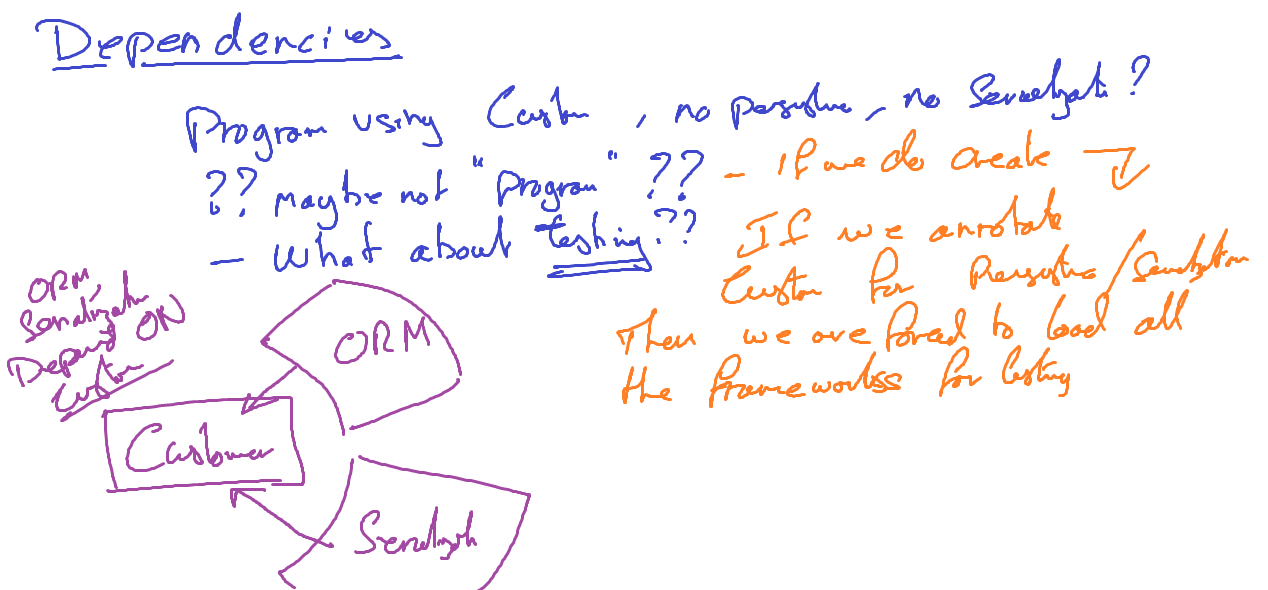 Dependencies
Program using Custom, no persistence, no Serialization?
?? maybe not "Program" ?? - If we do create
- What about testing??
If we annotate
Custom for Persistence/Serialization
Then we are forced to load all
the frameworks for testing
ORM,
Serialization
Depend ON
Custom
ORM
Customer
Serialization